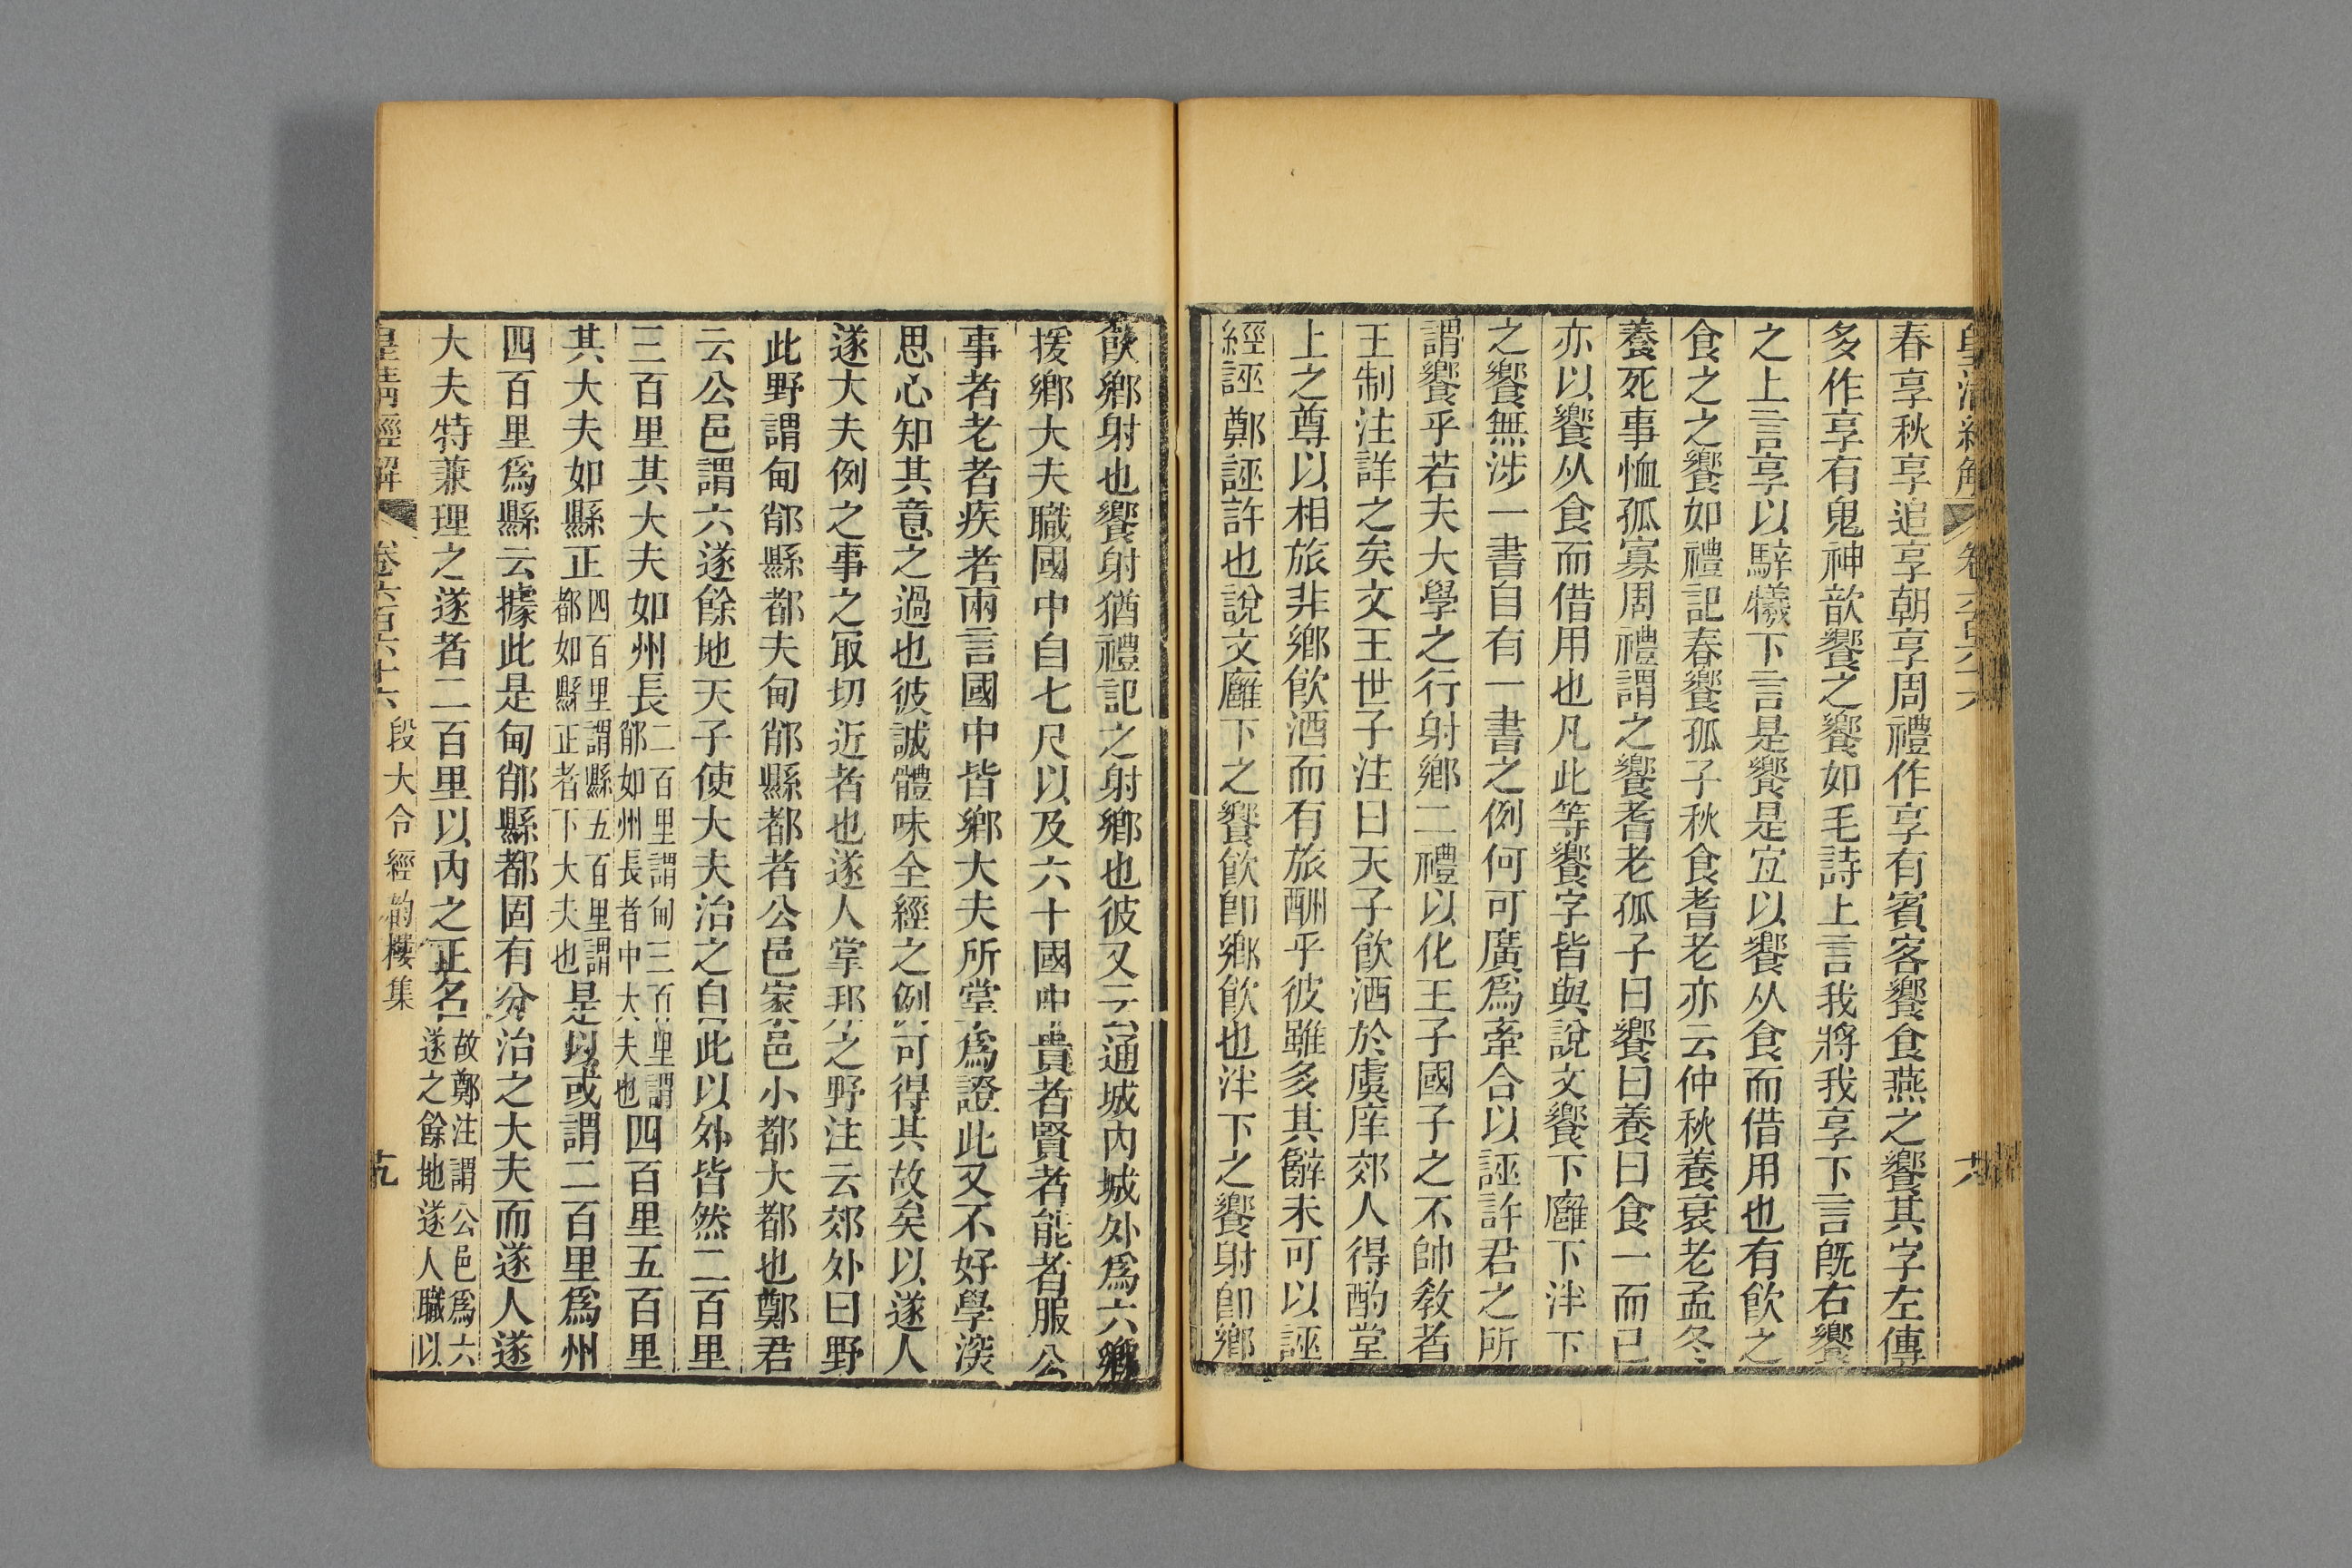 皇清經解 卷六百六十六 十八
春享秋享追享朝享周禮作享有賓客饗食燕之饗其字左傳
多作享有鬼神歆饗之饗如毛詩上言我將我享下言旣右饗
之上言享以騂犧下言是饗是宜以饗从食而借用也有飮之
食之之饗如禮記春饗孤子秋食耆老亦云仲秋養衰老孟冬
養死事恤孤寡周禮謂之饗耆老孤子曰饗曰養曰食一而已
亦以饗从食而借用也凡此等饗字皆與說文饗下廱下泮下
之饗無涉一書自有一書之例何可廣爲牽合以誣許君之所
謂饗乎若夫大學之行射鄕二禮以化王子國子之不帥敎者
王制注詳之矣文王世子注曰天子飮酒於虞庠郊人得酌堂
上之尊以相旅非鄕飮酒而有旅酬乎彼雖多其辭未可以誣
經誣鄭誣許也說文廱下之饗飮卽鄕飮也泮下之饗射卽鄕
飮鄕射也饗射猶禮記之射鄕也彼又云通城內城外爲六鄕
援鄕大夫職國中自七尺以及六十國中貴者賢者能者服公
事者老者疾者兩言國中皆鄕大夫所掌爲證此又不好學深
思心知其意之過也彼誠體味全經之例可得其故矣以遂人
遂大夫例之事之㝡切近者也遂人掌邦之野注云郊外曰野
此野謂甸郮縣都夫甸郮縣都者公邑家邑小都大都也鄭君
云公邑謂六遂餘地天子使大夫治之自此以外皆然二百里
三百里其大夫如州長二百里謂甸三百里謂四百里五百里
郮如州長者中大夫也
其大夫如縣正四百里謂縣五百里謂是以或謂二百里爲州
都如縣正者下大夫也
四百里爲縣云據此是甸郮縣都固有分治之大夫而遂人遂
大夫特兼理之遂者二百里以內之正名故鄭注謂公邑爲六
遂之餘地遂人職以
皇淸經解 卷六百六十六 段大令經韵樓集 十九